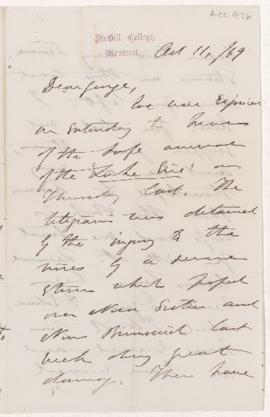 Acc 976
McGill College,
Montreal.
Oct 11, /69
Dear George,
We were rejoiced
on Saturday to hear
of the safe arrival
of the Lake Erie on
Thursday last. The
telegram was detained
by the injury to the
wires by a severe
storm which passed
over Nova Scotia and
New Brunswick last
week doing great
damage. There have